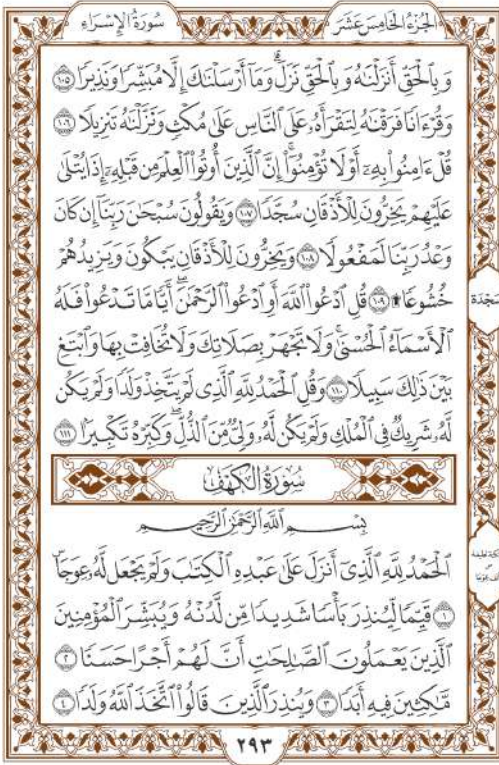 سُورَةُ الإِسْرَاءِ
الجُزْءُ الخَامِسَ عَشَرَ
وَبِٱلْحَقِّ أَنزَلْنَٰهُ وَبِٱلْحَقِّ نَزَلَۗ وَمَآ أَرْسَلْنَٰكَ إِلَّا مُبَشِّرًا وَنَذِيرًا ۝١٠٥
وَقُرْءَانًا فَرَقْنَٰهُ لِتَقْرَأَهُۥ عَلَى ٱلنَّاسِ عَلَىٰ مُكْثٍ وَنَزَّلْنَٰهُ تَنزِيلًا ۝١٠٦
قُلْ ءَامِنُوا۟ بِهِۦٓ أَوْ لَا تُؤْمِنُوٓا۟ۚ إِنَّ ٱلَّذِينَ أُوتُوا۟ ٱلْعِلْمَ مِن قَبْلِهِۦٓ إِذَا يُتْلَىٰ
عَلَيْهِمْ يَخِرُّونَ لِلْأَذْقَانِ سُجَّدًا ۝١٠٧ وَيَقُولُونَ سُبْحَٰنَ رَبِّنَآ إِن كَانَ
وَعْدُ رَبِّنَا لَمَفْعُولًا ۝١٠٨ وَيَخِرُّونَ لِلْأَذْقَانِ يَبْكُونَ وَيَزِيدُهُمْ
خُشُوعًا ۩ ۝١٠٩ قُلِ ٱدْعُوا۟ ٱللَّهَ أَوِ ٱدْعُوا۟ ٱلرَّحْمَٰنَۖ أَيًّا مَّا تَدْعُوا۟ فَلَهُ
ٱلْأَسْمَآءُ ٱلْحُسْنَىٰۚ وَلَا تَجْهَرْ بِصَلَاتِكَ وَلَا تُخَافِتْ بِهَا وَٱبْتَغِ
بَيْنَ ذَٰلِكَ سَبِيلًا ۝١١٠ وَقُلِ ٱلْحَمْدُ لِلَّهِ ٱلَّذِى لَمْ يَتَّخِذْ وَلَدًا وَلَمْ يَكُن
لَّهُۥ شَرِيكٌ فِى ٱلْمُلْكِ وَلَمْ يَكُن لَّهُۥ وَلِىٌّ مِّنَ ٱلذُّلِّۖ وَكَبِّرْهُ تَكْبِيرًۢا ۝١١١
سُورَةُ الكَهْفِ
بِسْمِ ٱللَّهِ ٱلرَّحْمَٰنِ ٱلرَّحِيمِ
ٱلْحَمْدُ لِلَّهِ ٱلَّذِىٓ أَنزَلَ عَلَىٰ عَبْدِهِ ٱلْكِتَٰبَ وَلَمْ يَجْعَل لَّهُۥ عِوَجَاۜ
۝١ قَيِّمًا لِّيُنذِرَ بَأْسًا شَدِيدًا مِّن لَّدُنْهُ وَيُبَشِّرَ ٱلْمُؤْمِنِينَ
ٱلَّذِينَ يَعْمَلُونَ ٱلصَّٰلِحَٰتِ أَنَّ لَهُمْ أَجْرًا حَسَنًا ۝٢
مَّٰكِثِينَ فِيهِ أَبَدًا ۝٣ وَيُنذِرَ ٱلَّذِينَ قَالُوا۟ ٱتَّخَذَ ٱللَّهُ وَلَدًا ۝٤
سَجْدَة
٢٩٣